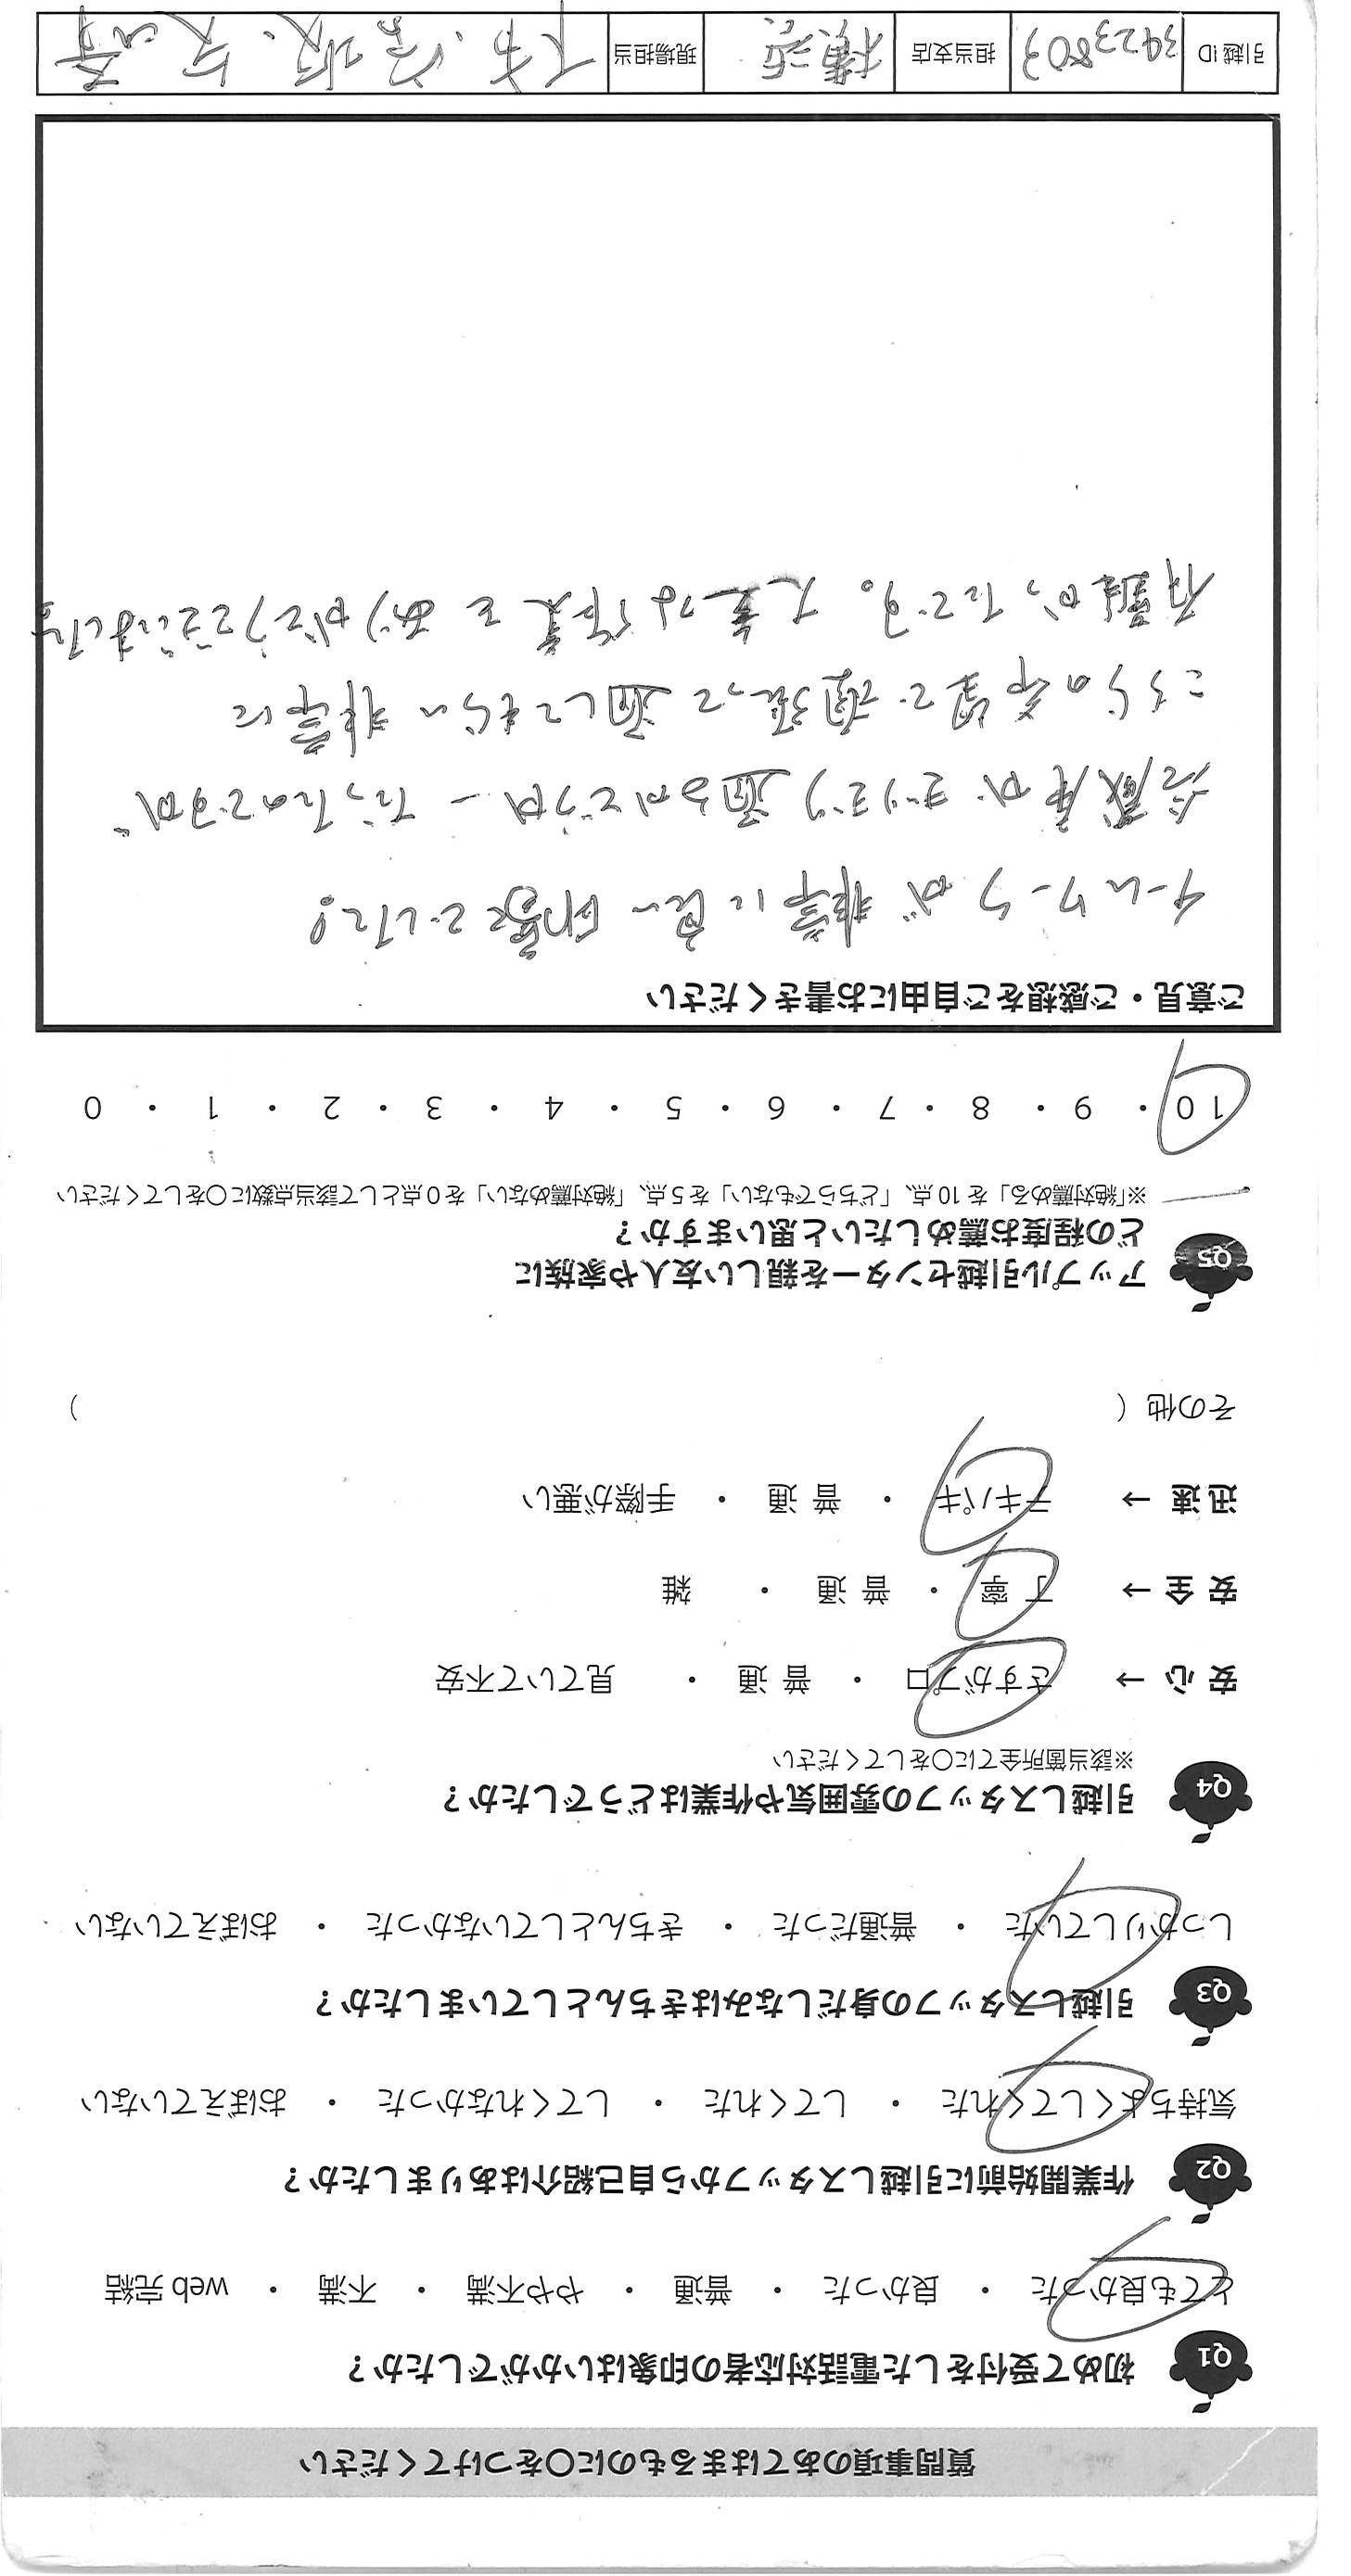 質問事項のあてはまるものに〇をつけてください
Q1 初めて受付をした電話対応者の印象はいかがでしたか？
とても良かった ・ 良かった ・ 普通 ・ やや不満 ・ 不満 ・ web 完結
Q2 作業開始前に引越しスタッフから自己紹介はありましたか？
気持ちよくしてくれた ・ してくれた ・ してくれなかった ・ おぼえていない
Q3 引越しスタッフの身だしなみはきちんとしていましたか？
しっかりしていた ・ 普通だった ・ きちんとしていなかった ・ おぼえていない
Q4 引越しスタッフの雰囲気や作業はどうでしたか？
※該当箇所全てに〇をしてください
安 心 → さすがプロ ・ 普 通 ・ 見ていて不安
安 全 → 丁 寧 ・ 普 通 ・ 雑
迅 速 → テキパキ ・ 普 通 ・ 手際が悪い
その他 ( )
Q5 アップル引越センターを親しい友人や家族に
どの程度お薦めしたいと思いますか？
※「絶対薦める」を 10 点、「どちらでもない」を 5 点、「絶対薦めない」を 0 点として該当点数に〇をしてください
10 ・ 9 ・ 8 ・ 7 ・ 6 ・ 5 ・ 4 ・ 3 ・ 2 ・ 1 ・ 0
ご意見・ご感想をご自由にお書きください
チームワークが非常に良い印象でした!
冷蔵庫がギリギリ通るかどうかーだったのですが
こちらの希望で頑張って通してもらい非常に
有難かったです。大変な作業をありがとうございました
引越 ID 3423803 担当支店 横浜 現場担当